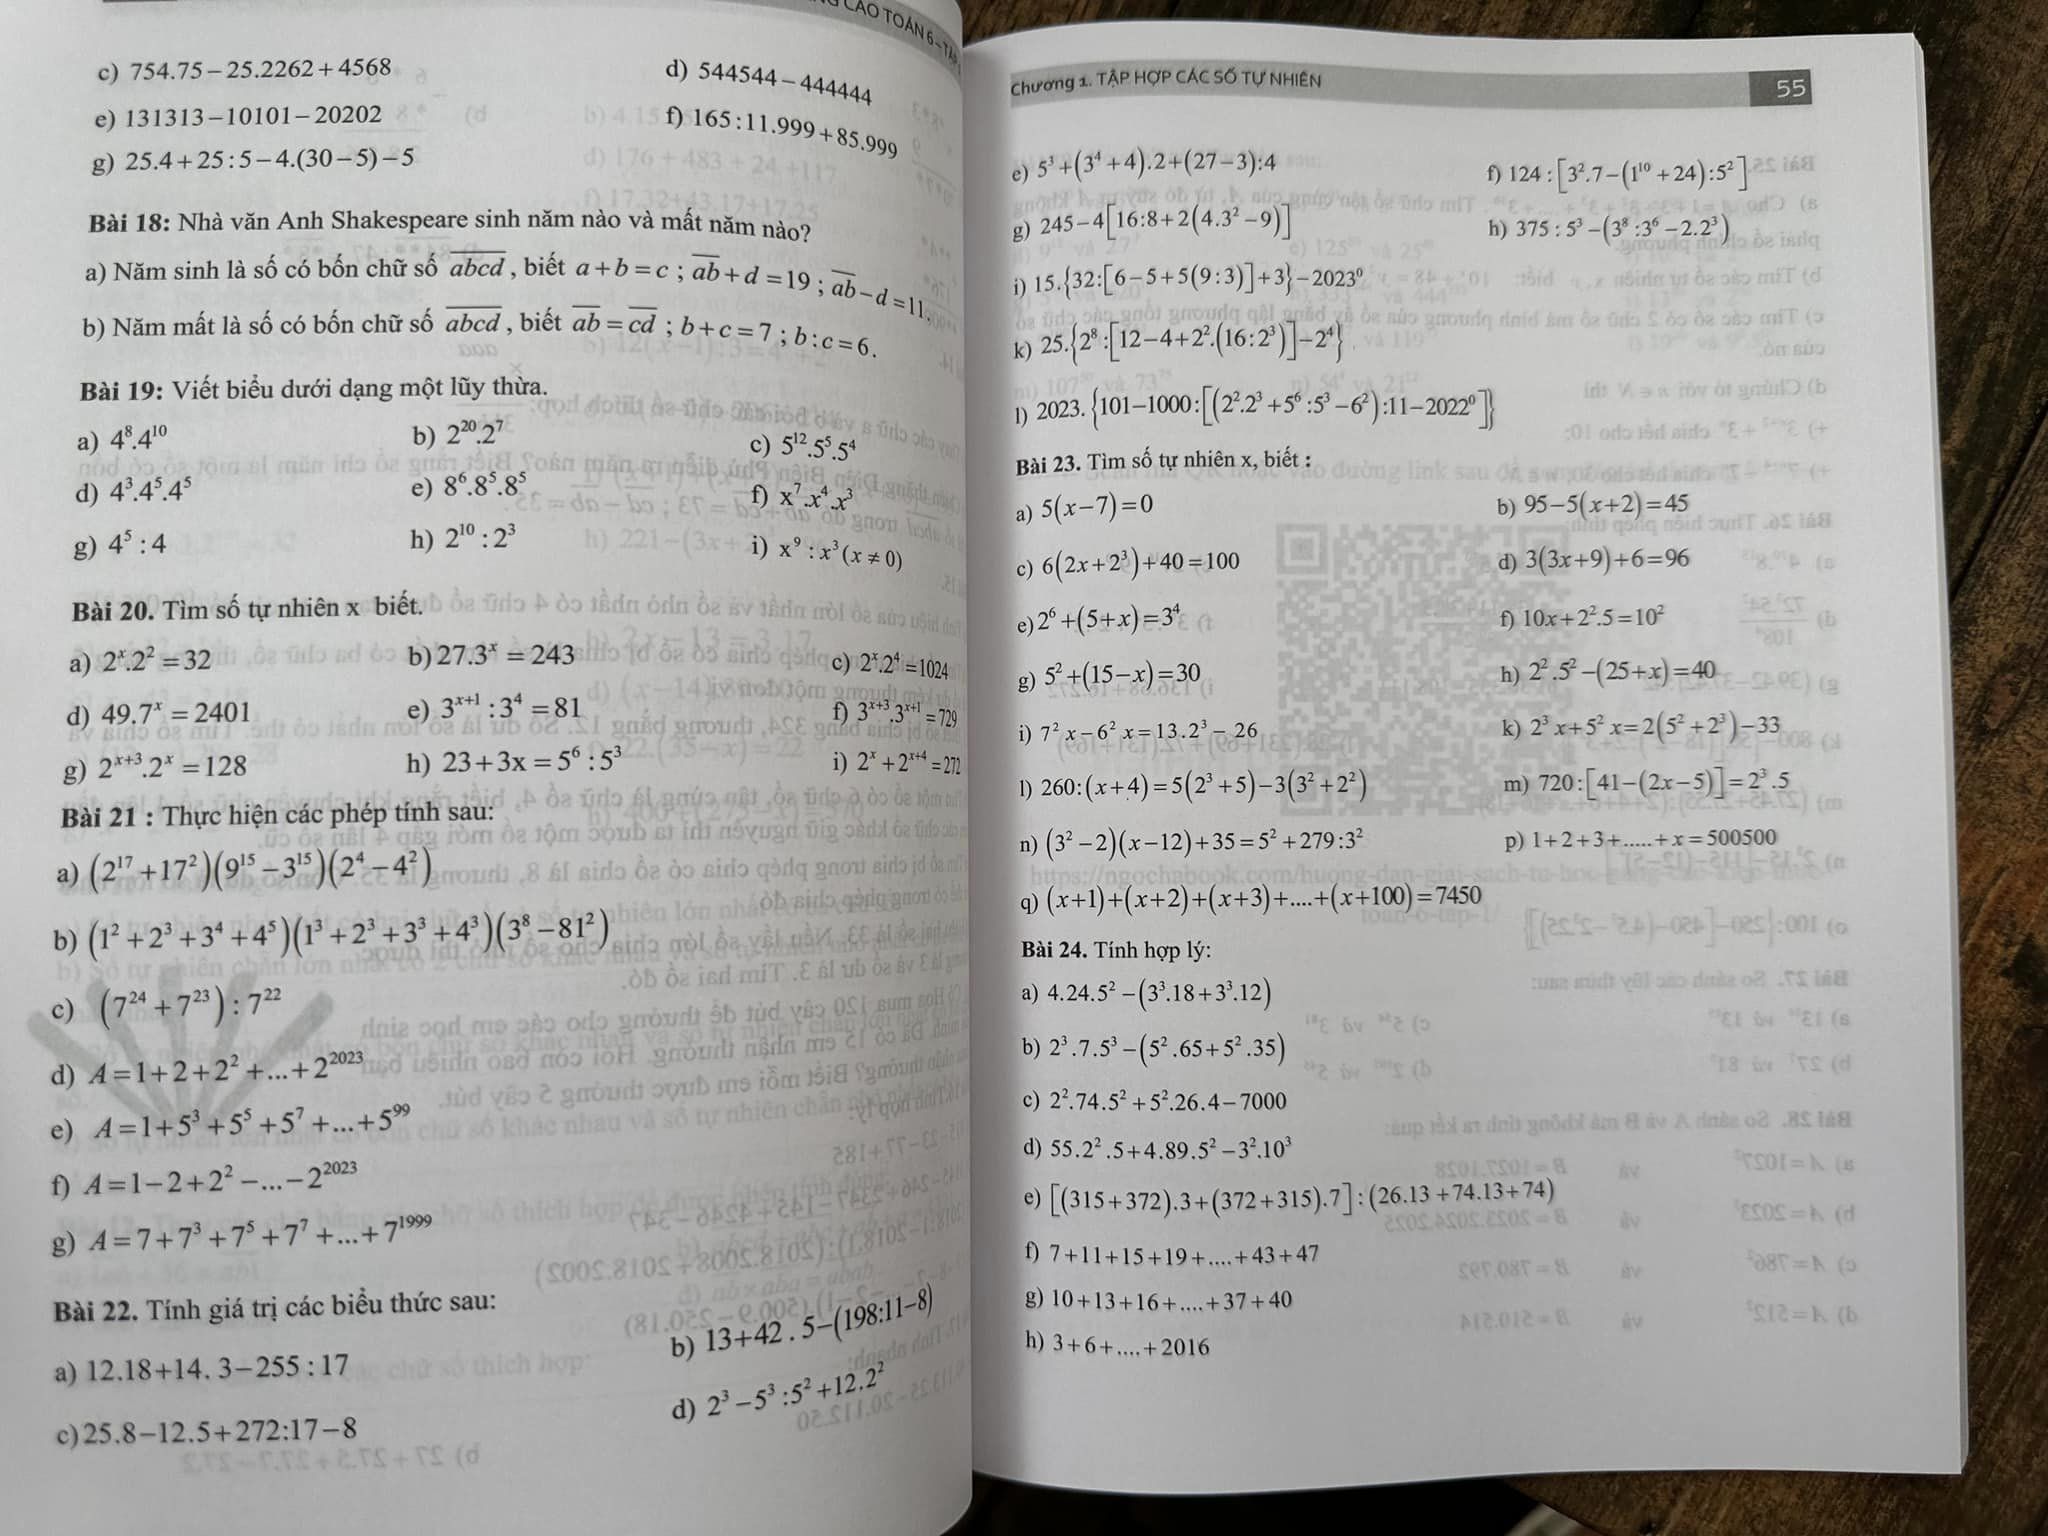 CAO TOÁN 6 – TẬP
c) 754.75 – 25.2262 + 4568
d) 544544 – 444444
e) 131313 – 10101 – 20202
f) 165 : 11.999 + 85.999
g) 25.4 + 25 : 5 – 4.(30 – 5) – 5
Bài 18: Nhà văn Anh Shakespeare sinh năm nào và mất năm nào?
a) Năm sinh là số có bốn chữ số \overline{abcd} , biết a + b = c ; \overline{ab} + d = 19 ; \overline{ab} – d = 11.
b) Năm mất là số có bốn chữ số \overline{abcd} , biết \overline{ab} = \overline{cd} ; b + c = 7 ; b : c = 6.
Bài 19: Viết biểu dưới dạng một lũy thừa.
a) 4⁸.4¹⁰ b) 2²⁰.2⁷ c) 5¹².5⁵.5⁴
d) 4³.4⁵.4⁵ e) 8⁶.8⁵.8⁵ f) x⁷.x⁴.x³
g) 4⁵ : 4 h) 2¹⁰ : 2³ i) x⁹ : x³ (x ≠ 0)
Bài 20. Tìm số tự nhiên x biết.
a) 2ˣ.2² = 32 b) 27.3ˣ = 243 c) 2ˣ.2⁴ = 1024
d) 49.7ˣ = 2401 e) 3ˣ⁺¹ : 3⁴ = 81 f) 3ˣ⁺³.3ˣ⁺¹ = 729
g) 2ˣ⁺³.2ˣ = 128 h) 23 + 3x = 5⁶ : 5³ i) 2ˣ + 2ˣ⁺⁴ = 272
Bài 21 : Thực hiện các phép tính sau:
a) (2¹⁷ + 17²)(9¹⁵ – 3¹⁵)(2⁴ – 4²)
b) (1² + 2³ + 3⁴ + 4⁵)(1³ + 2³ + 3³ + 4³)(3⁸ – 81²)
c) (7²⁴ + 7²³) : 7²²
d) A = 1 + 2 + 2² + ... + 2²⁰²³
e) A = 1 + 5³ + 5⁵ + 5⁷ + ... + 5⁹⁹
f) A = 1 – 2 + 2² – ... – 2²⁰²³
g) A = 7 + 7³ + 7⁵ + 7⁷ + ... + 7¹⁹⁹⁹
Bài 22. Tính giá trị các biểu thức sau:
a) 12.18 + 14. 3 – 255 : 17
b) 13 + 42 . 5 – (198:11 – 8)
c) 25.8 – 12.5 + 272:17 – 8
d) 2³ – 5³ : 5² + 12.2²
Chương 1. TẬP HỢP CÁC SỐ TỰ NHIÊN 55
e) 5³ + (3⁴ + 4).2 + (27 – 3):4 f) 124 : [3².7 – (1¹⁰ + 24) : 5²]
g) 245 – 4[16:8 + 2(4.3² – 9)] h) 375 : 5³ – (3⁸ : 3⁶ – 2.2³)
i) 15.{32:[6 – 5 + 5(9:3)] + 3} – 2023⁰
k) 25.{2⁸:[12 – 4 + 2².(16:2³)] – 2⁴}
l) 2023.{101 – 1000:[(2².2³ + 5⁶:5³ – 6²):11 – 2022⁰]}
Bài 23. Tìm số tự nhiên x, biết :
a) 5(x – 7) = 0 b) 95 – 5(x + 2) = 45
c) 6(2x + 2³) + 40 = 100 d) 3(3x + 9) + 6 = 96
e) 2⁶ + (5 + x) = 3⁴ f) 10x + 2².5 = 10²
g) 5² + (15 – x) = 30 h) 2².5² – (25 + x) = 40
i) 7² x – 6² x = 13.2³ – 26 k) 2³ x + 5² x = 2(5² + 2³) – 33
l) 260:(x + 4) = 5(2³ + 5) – 3(3² + 2²) m) 720:[41 – (2x – 5)] = 2³.5
n) (3² – 2)(x – 12) + 35 = 5² + 279:3² p) 1 + 2 + 3 + ..... + x = 500500
q) (x + 1) + (x + 2) + (x + 3) + .... + (x + 100) = 7450
Bài 24. Tính hợp lý:
a) 4.24.5² – (3³.18 + 3³.12)
b) 2³.7.5³ – (5².65 + 5².35)
c) 2².74.5² + 5².26.4 – 7000
d) 55.2².5 + 4.89.5² – 3².10³
e) [(315 + 372).3 + (372 + 315).7] : (26.13 + 74.13 + 74)
f) 7 + 11 + 15 + 19 + .... + 43 + 47
g) 10 + 13 + 16 + .... + 37 + 40
h) 3 + 6 + .... + 2016